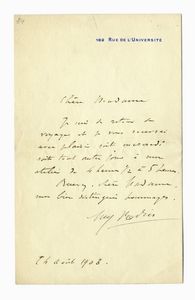 182 RUE DE L'UNIVERSITÉ
Chère Madame
Je suis de retour de
voyage et je vous recevrai
avec plaisir soit mercredi
soit tout autre jour à mon
atelier de 4 heures ½ à 5 heures
chère Madame,
mes bien distingués hommages.
Aug Rodin
24 août 1908